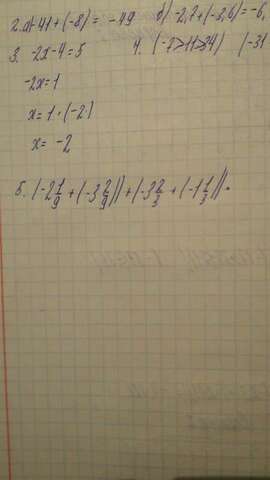 2. а) -41 + (-8) = -49 б) -2,7 + (-3,6) = -6,
3. -2х - 4 = 5 4. (-7 > 11 > 34) (-31
-2х = 1
х = 1 · (-2)
х = -2
5. (-2 1/9 + (-3 2/9)) + (-3 2/3 + (-1 1/3)) =